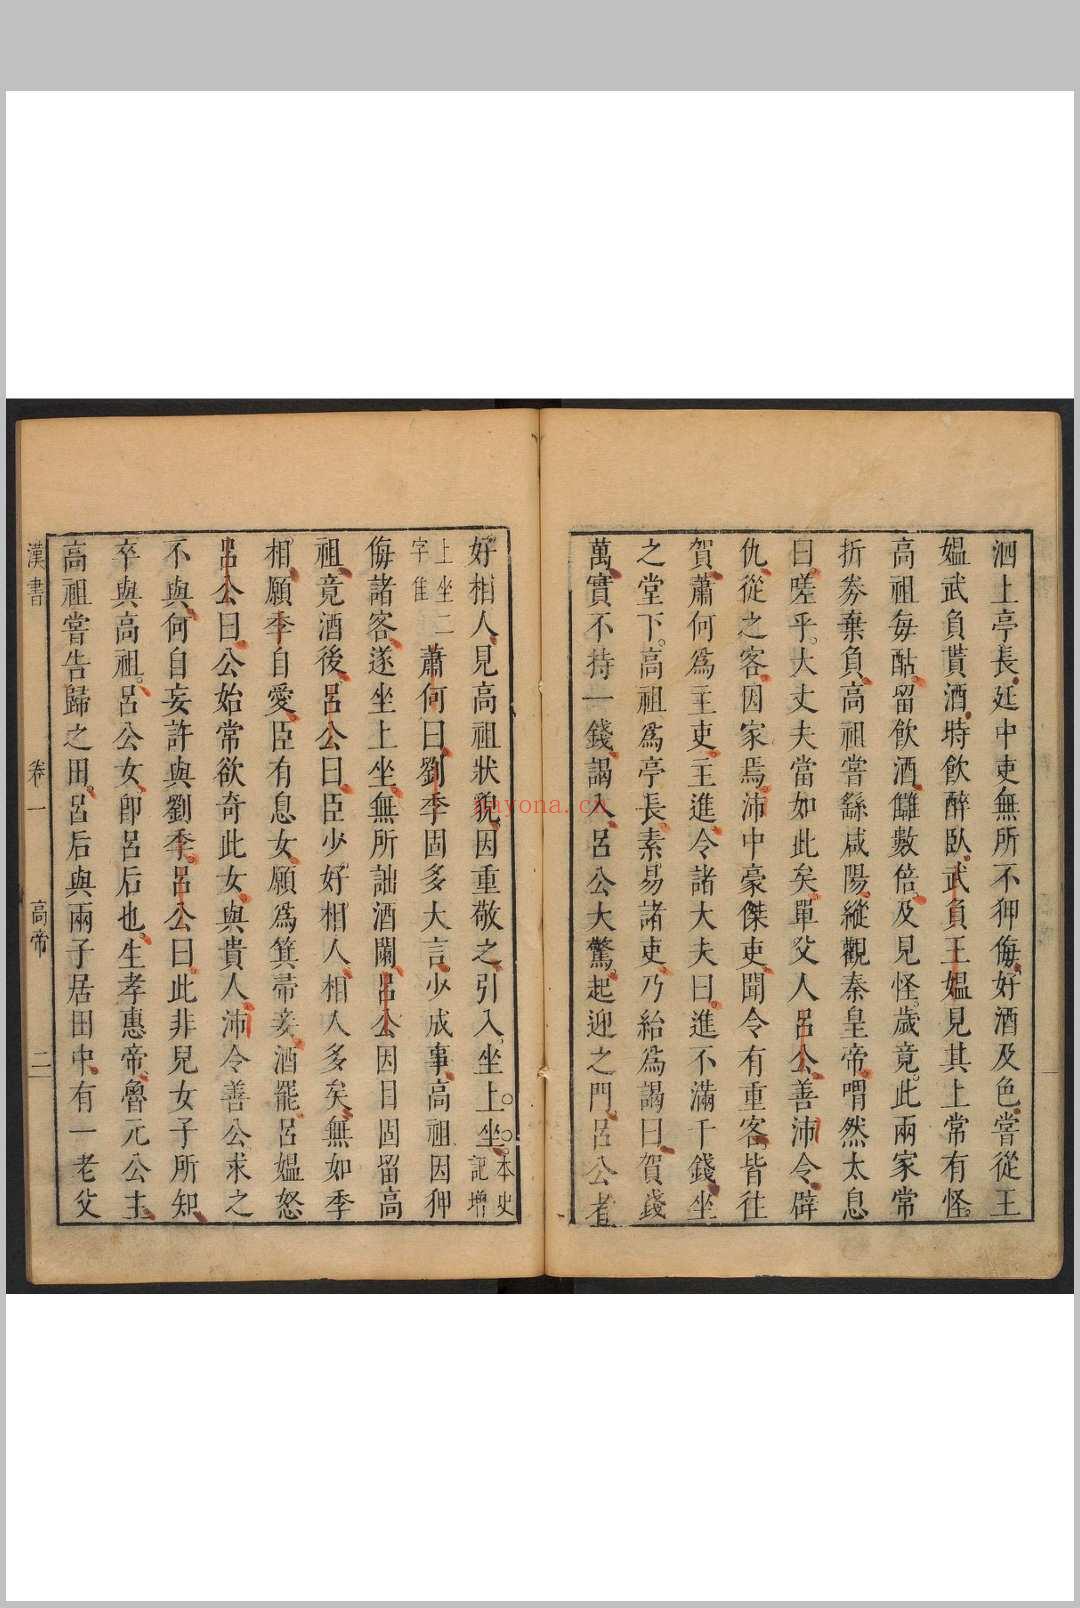 泗上亭長。廷中吏無所不狎侮。好酒及色。嘗從王
媼武負貰酒。時飲醉臥。武負王媼見其上常有怪。
高祖每酤。留飲酒。讎數倍。及見怪。歲竟。此兩家常
折券棄負。高祖嘗繇咸陽。縱觀秦皇帝。喟然太息
曰。嗟乎。大丈夫當如此矣。單父人呂公善沛令。辟
仇。從之客。因家焉。沛中豪傑吏聞令有重客。皆往
賀。蕭何為主吏。主進。令諸大夫曰。進不滿千錢。坐
之堂下。高祖為亭長。素易諸吏。乃紿為謁曰。賀錢
萬。實不持一錢。謁入。呂公大驚。起迎之門。呂公者
好相人。見高祖狀貌。因重敬之。引入。坐上坐。本史
記增
上坐二
字隹
蕭何曰。劉季固多大言。少成事。高祖因狎
侮諸客。遂坐上坐。無所詘。酒闌。呂公因目固留高
祖。竟酒後。呂公曰。臣少好相人。相人多矣。無如季
相。願季自愛。臣有息女。願為箕帚妾。酒罷。呂媼怒
呂公曰。公始常欲奇此女。與貴人。沛令善公。求之
不與。何自妄許與劉季。呂公曰。此非兒女子所知。
卒與高祖。呂公女。即呂后也。生孝惠帝。魯元公主。
高祖嘗告歸之田。呂后與兩子居田中。有一老父
漢書
卷一
高帝
二
nayona.cn